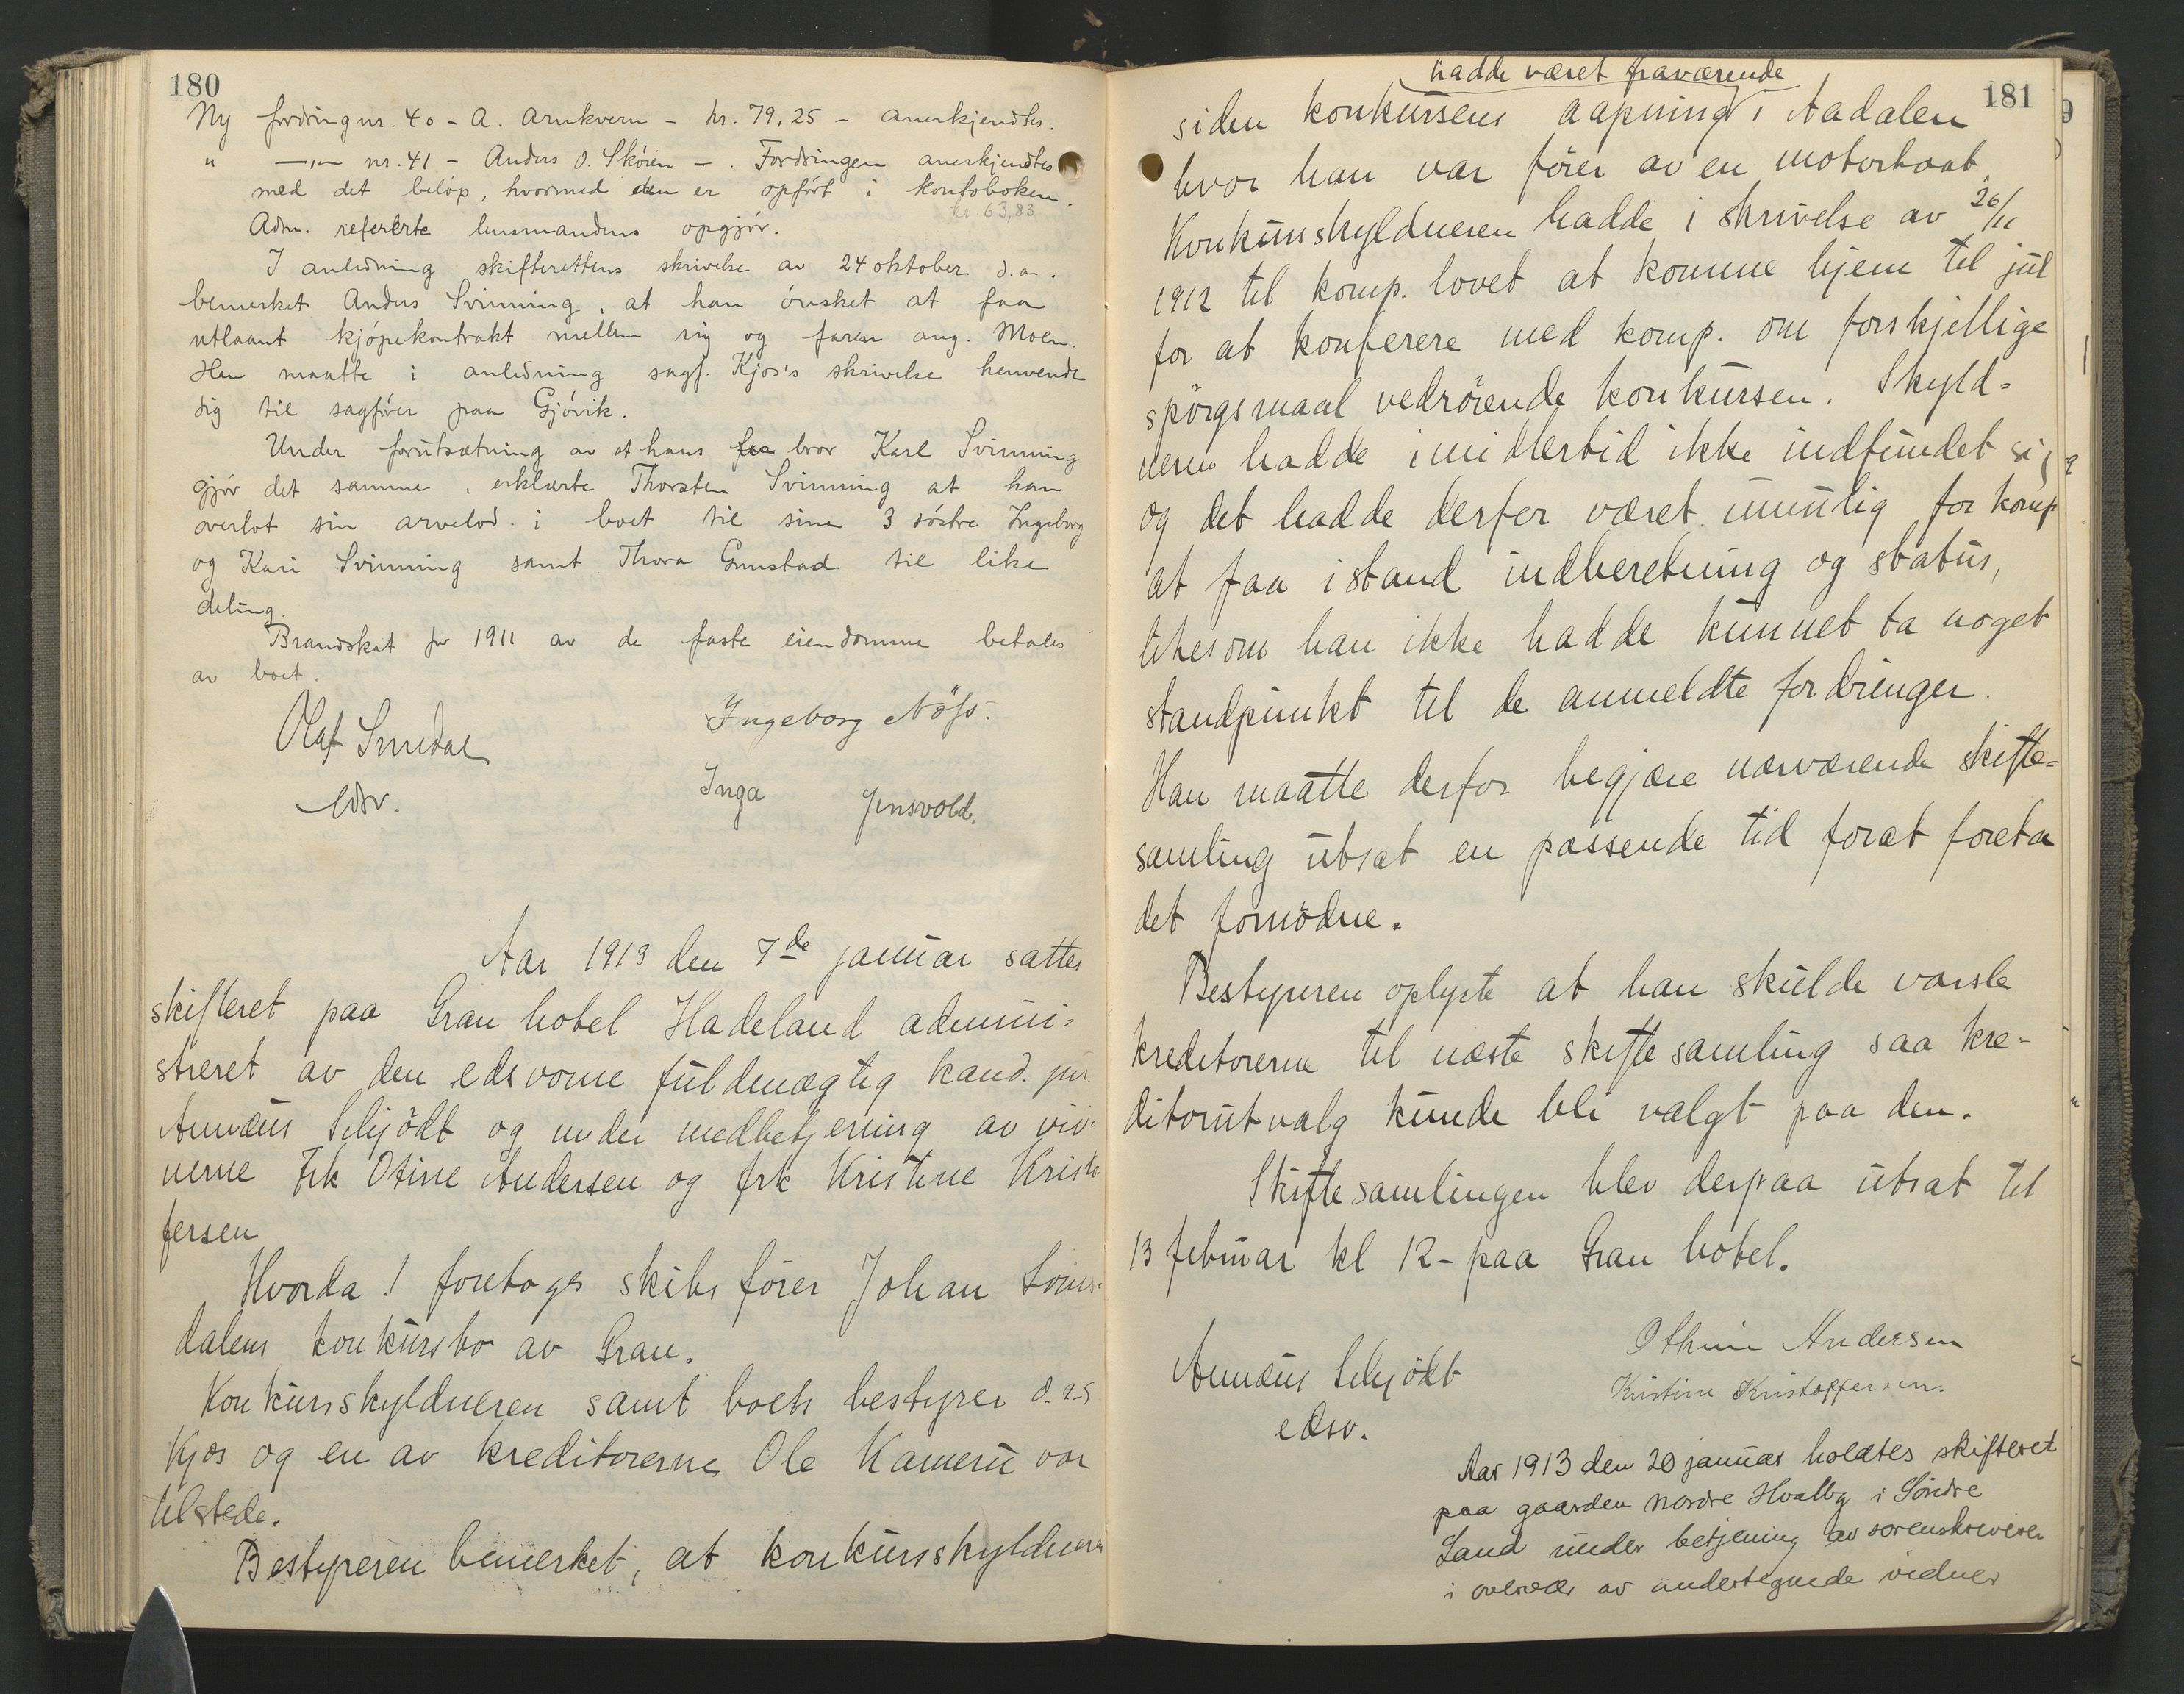 180
Ny fordring nr. 40 - A. Arnkvern - kr. 79,25 - anerkjendtes.
" —"— nr. 41 - Anders O. Skøien - . Fordringen anerkjendtes
med det beløp, hvormed den er opført i kontoboken.
kr 63,83
Adm. refererte lensmandens opgjør.
I anledning skifterettens skrivelse av 24 oktober d.a.
bemerket Anders Svinning, at han ønsket at faa
utlaant kjøpekontrakt mellem sig og faren ang. Moen.
Han maatte i anledning sagf. Kjos's skrivelse henvende
sig til sagfører paa Gjøvik.
Under forutsætning av at hans bror Karl Svinning
gjør det samme, erklærte Thorsten Svinning at han
overlot sin arvelod i boet til sine 3 søstre Ingeborg
og Kari Svinning samt Thora Grinstad til like
deling.
Brandskat for 1911 av de faste eiendomme betales
av boet.
Olaf Smedal
edsv.
Ingeborg Nöss.
Inga Jensvold.
Aar 1913 den 7de januar sattes
skifteret paa Gran hotel Hadeland admini=
streret av den edsvorne fuldmægtig kand. jur
Annæus Schjödt og under medbetjening av vid=
nerne frk Otine Andersen og frk Kristine Kristo
fersen
Hvorda! foretoges skibsfører Johan
dalens konkursbo av Gran.
Konkursskyldneren samt boets bestyrer o.r.s
Kjos og en av kreditorerne Ole Kamerud var
tilstede.
Bestyreren bemerket, at konkursskyldneren
181
hadde været fraværende
siden konkursens aapning i Aadalen
hvor han var fører av en motorbaat.
Konkursskyldneren hadde i skrivelse av 26/11
1912 til komp. lovet at komme hjem til jul
for at konferere med komp. om forskjellige
spörgsmaal vedrörende konkursen. Skyld=
neren hadde imidlertid ikke indfundet sig
og det hadde derfor været umulig for komp
at faa istand indberetning og status,
likesom han ikke hadde kunnet ta noget
standpunkt til de anmeldte fordringer.
Han maatte derfor begjære nærværende skifte=
samling utsat en passende tid forat foreta
det fornödne.
Bestyreren oplyste at han skulde varsle
kreditorerne til næste skiftesamling saa kre-
ditorutvalg kunde bli valgt paa den.
Skiftesamlingen blev derpaa utsat til
13 februar kl 12 - paa Gran hotel.
Annæus Schjödt
edsv.
Othine Andersen
Kristine Kristoffersen.
Aar 1913 den 20 januar holdtes skifteret
paa gaarden nordre Hvalby i Søndre
Land under betjening av sorenskriveren
i overvær av undertegnede vidner